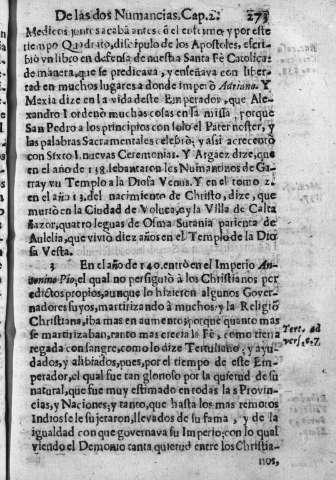 De las dos Numancias. Cap. 2. 273
Medicos juntos acaba antes el entorno; y por este
tiempo Quadrato, discipulo de los Apostoles, escri-
biò vn libro en defensa de nuestra Santa Fè Catolica:
de manera, que se predicava, y enseñava con liber-
tad en muchos lugares a donde imperò Adriano. Y
Mexia dize en la vida deste Emperador, que Ale-
xandro I. ordenò muchas cosas en la missa, porque
San Pedro a los principios con solo el Pater noster, y
las palabras Sacramentales celebrò, y assi acrecentò
con Sixto I. nuevas Ceremonias. Y Argaez dize, que
en el año de 138. lebantaron los Numantinos de Ga-
rray vn Templo a la Diosa Venus. Y en el tomo 2.
en el año 13. del nacimiento de Christo, dize, que
muriò en la Ciudad de Voluca, ey la Villa de Calta
ñazor, quatro leguas de Osma Surania parienta de
Aulelia, que viviò diez años en el Templo de la Dio
sa Vesta.
3 En el año de 140. entrò en el Imperio An-
tonino Pio, el qual no persiguiò à los Christianos por
edictos propios, aunque lo hizieron algunos Gover-
nadores suyos, martirizando à muchos; y la Religiò
Christiana, iba mas en aumento; porque quanto mas
se martirizaban, tanto mas crecia la Fè, como tierra
regada con sangre, como lo dize Tertuliano; y ayu-
dados, y alibiados, pues, por el tiempo de este Em-
perador, el qual fue tan glorioso por la quietud de su
natural, que fue muy estimado en todas las Provin-
cias, y Naciones; y tanto, que hasta los mas remotos
Indios se le sujetaron, llevados de su fama, y de la
igualdad con que governava su Imperio; con lo qual
viendo el Demonio tanta quietud entre los Christia-
nos,
Tert. ad
vers. c. 7.